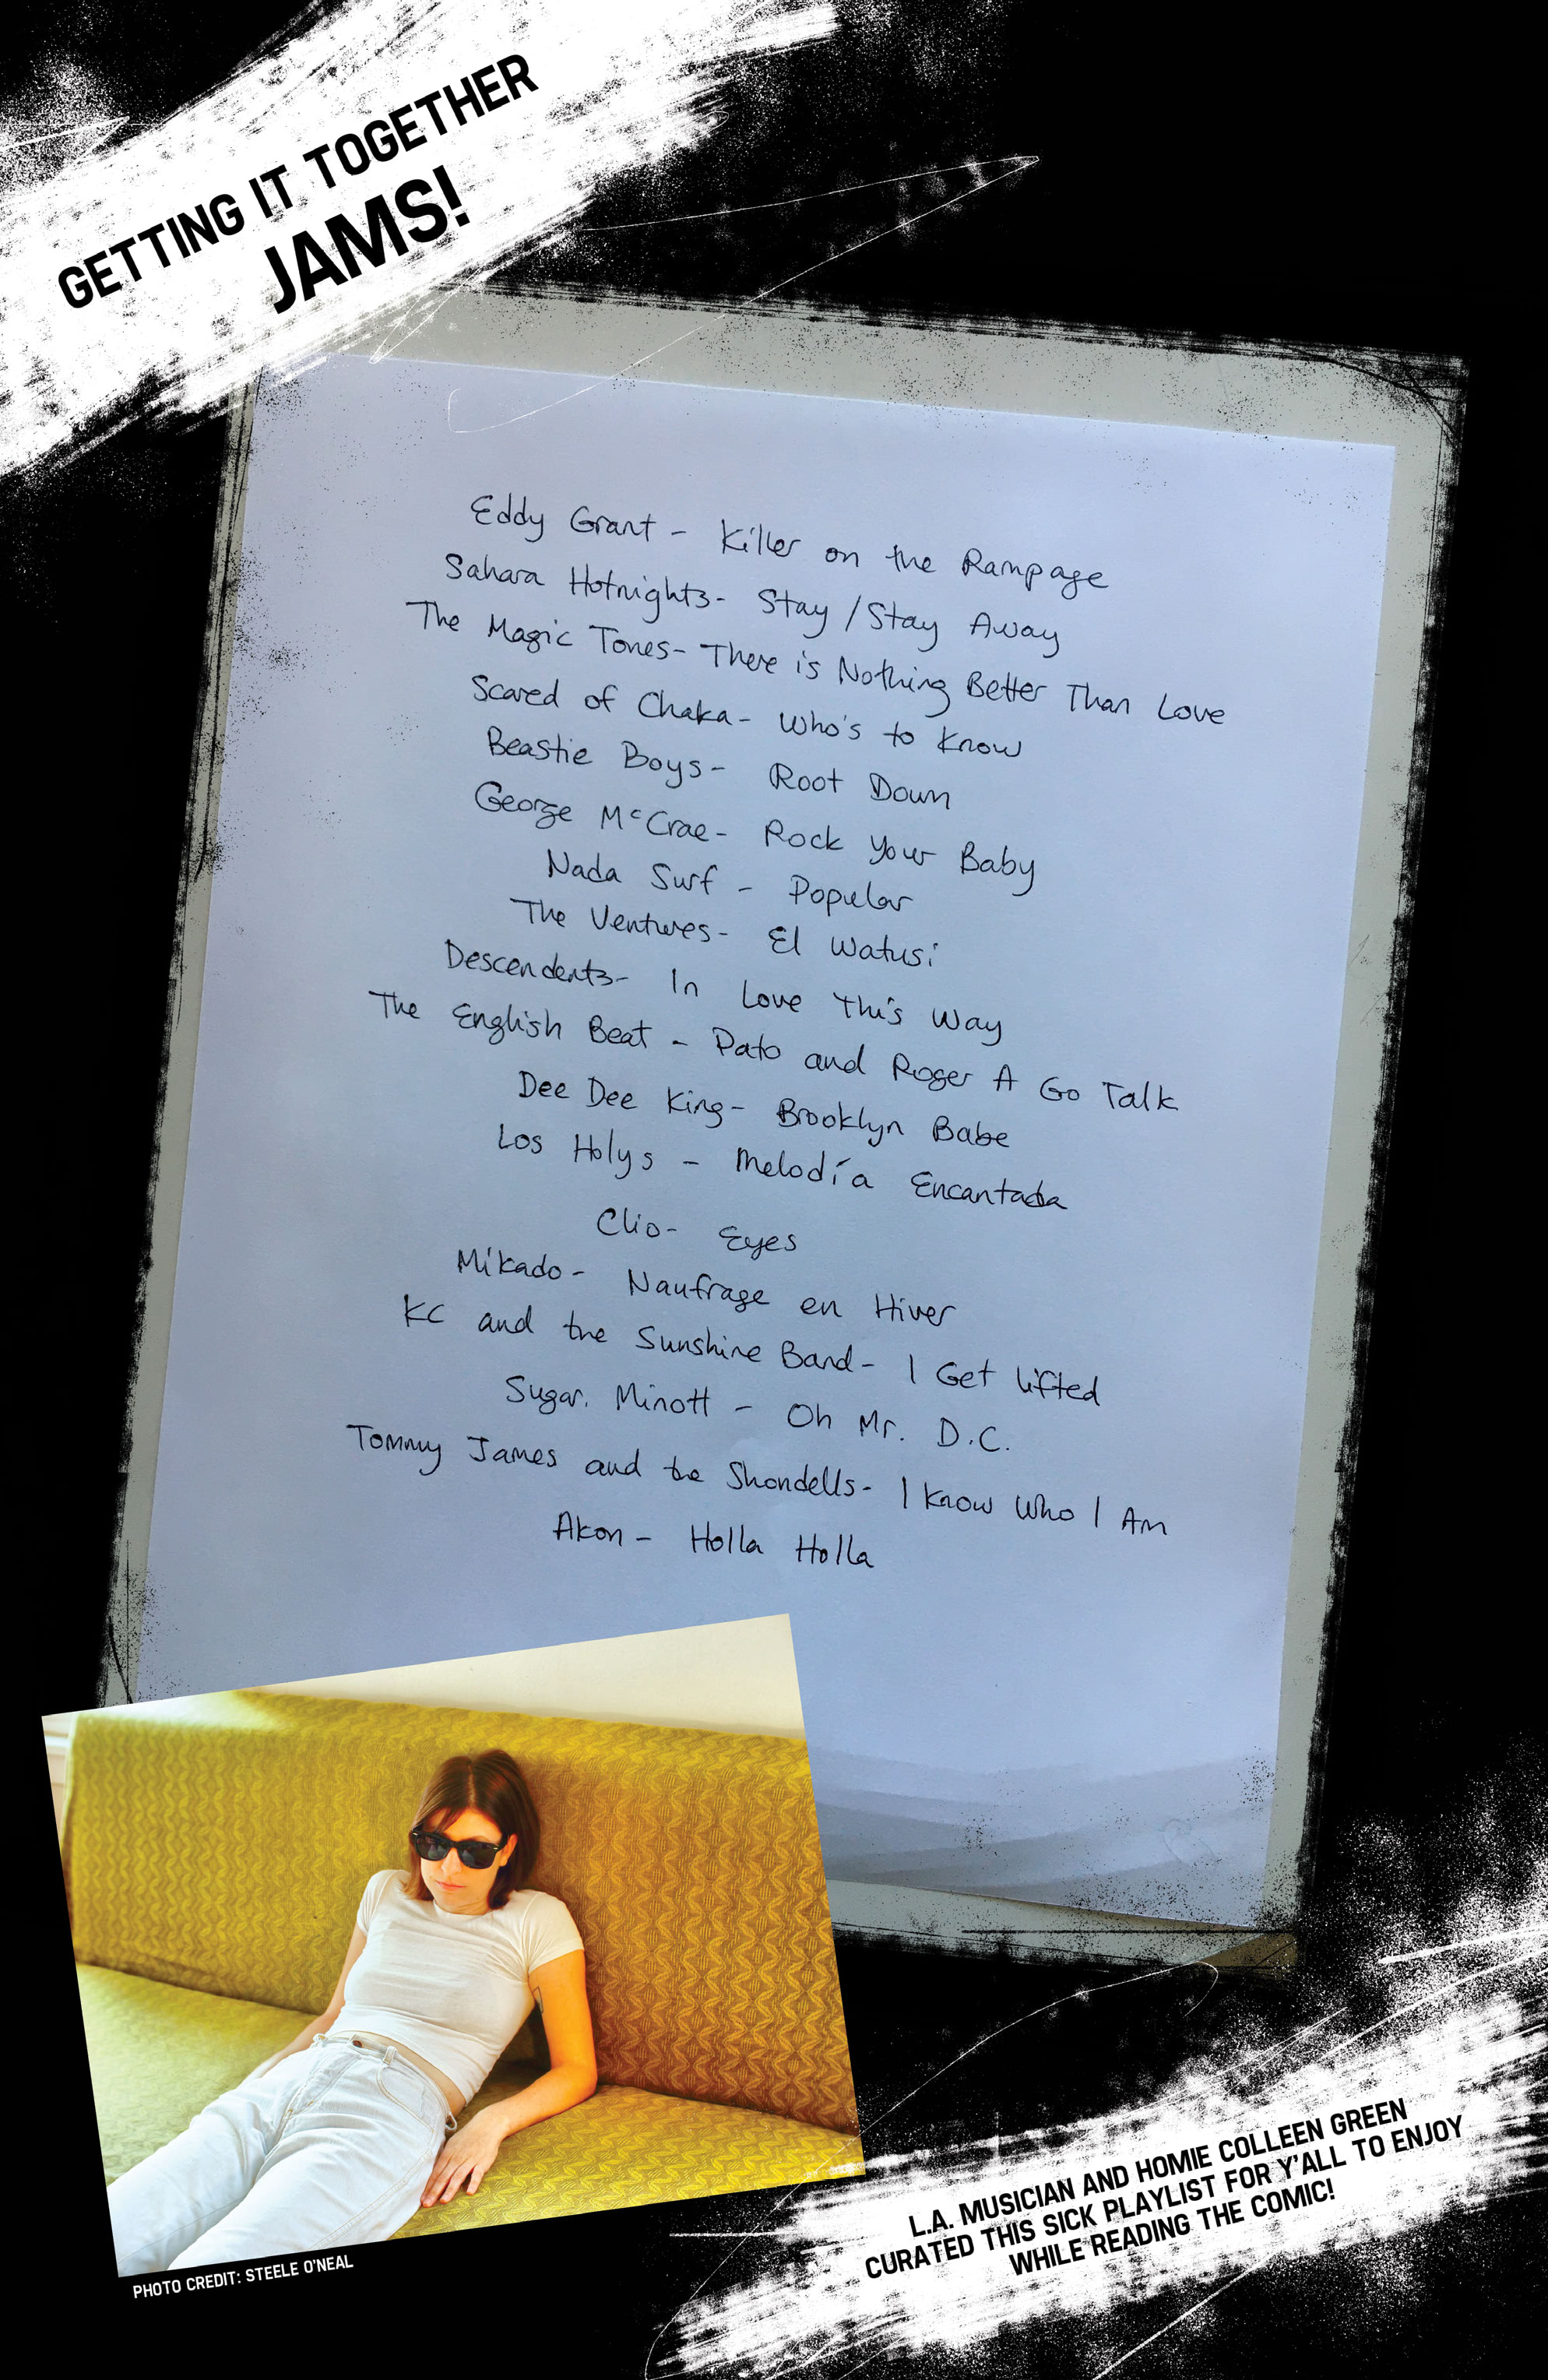 GETTING IT TOGETHER
JAMS!
Eddy Grant - Killer on the Rampage
Sahara Hotnights - Stay / Stay Away
The Magic Tones - There is Nothing Better Than Love
Scared of Chaka - Who's to Know
Beastie Boys - Root Down
George McCrae - Rock Your Baby
Nada Surf - Popular
The Ventures - El Watusi
Descendents - In Love This Way
The English Beat - Pato and Roger A Go Talk
Dee Dee King - Brooklyn Babe
Los Holys - Melodía Encantada
Clio - Eyes
Mikado - Naufrage en Hiver
KC and the Sunshine Band - I Get Lifted
Sugar Minott - Oh Mr. D.C.
Tommy James and the Shondells - I Know Who I Am
Akon - Holla Holla
PHOTO CREDIT: STEELE O'NEAL
L.A. MUSICIAN AND HOMIE COLLEEN GREEN
CURATED THIS SICK PLAYLIST FOR Y'ALL TO ENJOY
WHILE READING THE COMIC!